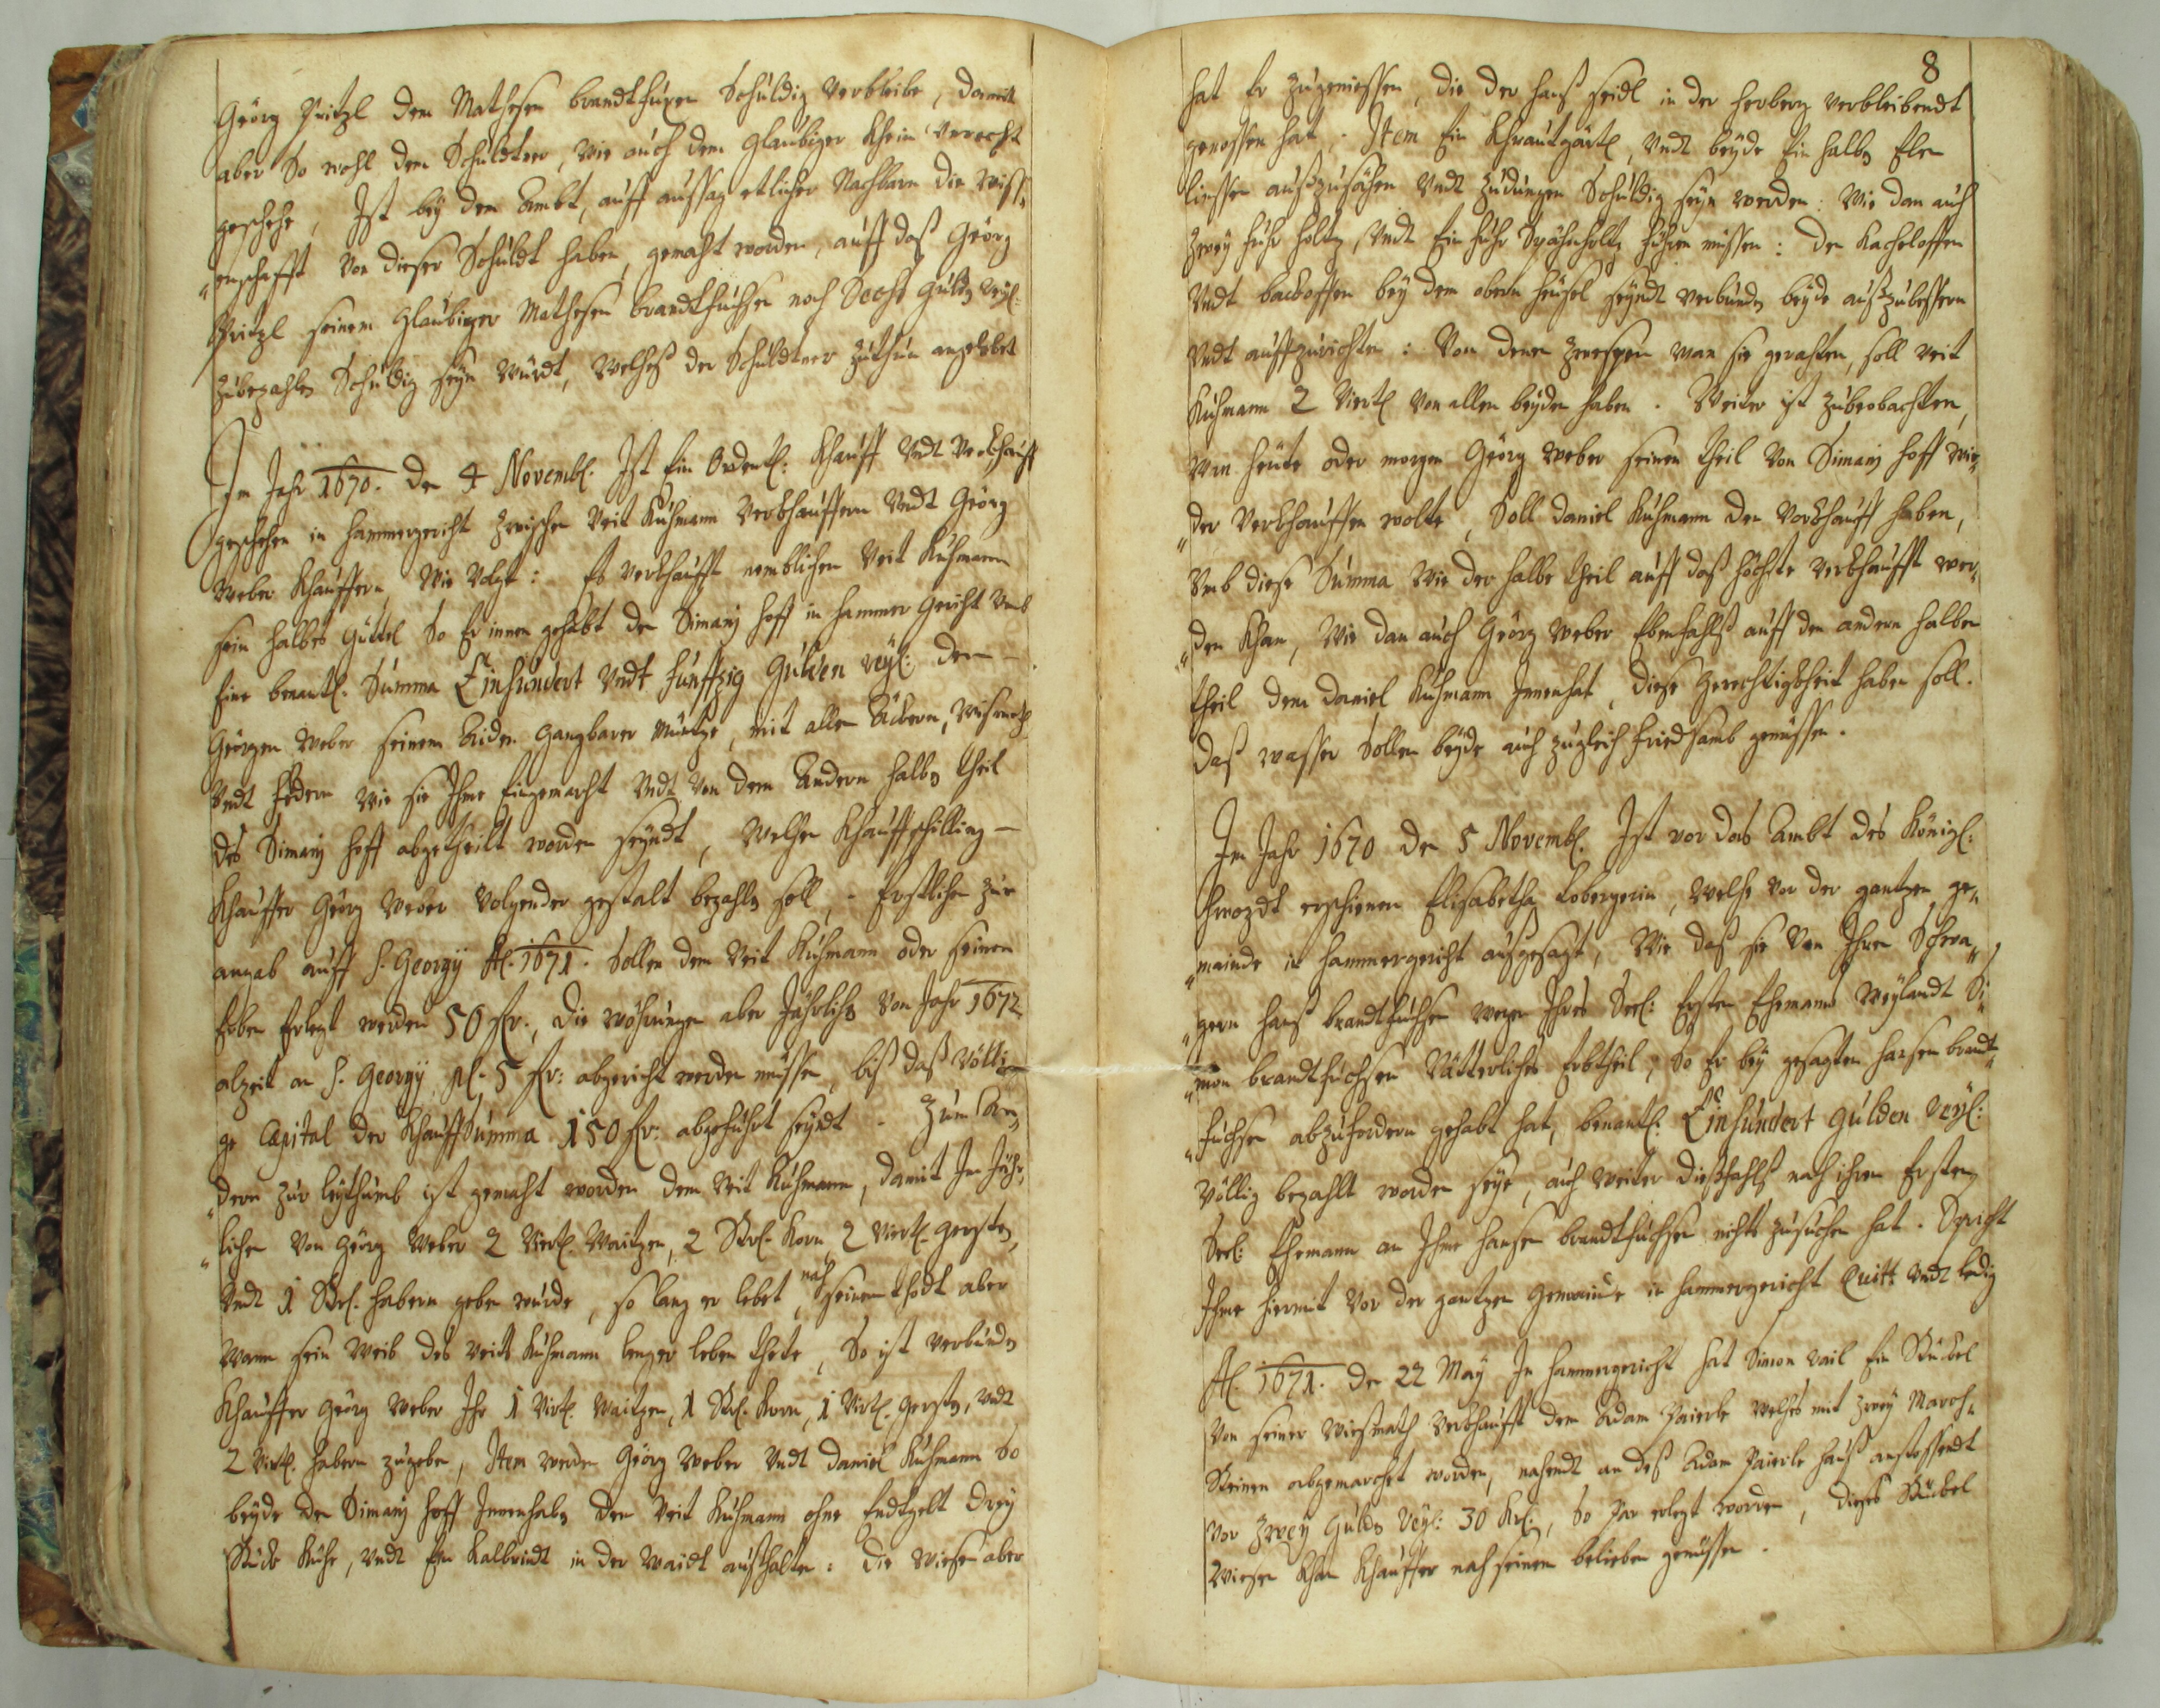 Geörg Pritzl dem Mathesen brandtfuxen Schuldig verbleibe, damit
aber So wohl dem Schuldtner, wie auch dem glaubiger khein Unrecht
geschehe, Ist beÿ dem Ambt, auff aussag etlicher Nachbarn die wiss-
„enschafft von dieser Schuldt haben, gemacht worden, auff daß Geörg
Pritzl seinem glaubiger Mathesen brandtfuchsen noch Sechs guld(en) reÿl:
zubezahlen Schuldig seÿn wurdt, welches der Schuldtner zuthun angelobet
Im Jahr 1670. Den 4 Novemb(er). Ist Ein Ordentl: Khauff Undt Verkhauff
geschehen in hammergericht zwischen Veit Kuhmann Verkhauffern Undt Geörg
Weber Khauffern, Wie Volgt: Es Verkhaufft nemblichen Veit Kuhmann
sein halbes güttel So Er innen gehabt den Simanj hoff in hammer gericht Umb
Eine benantl. Summa Einhundert Undt funffzig Gulden reÿl: dem
Geörgen Weber seinem Aiden gangbarer müntze, mit allen Äckern, Wismath
Undt federn wie sie Ihme Eingemacht Undt von dem Andern halben theil
des Simanj hoff abgetheilt worden seÿndt, Welchen Khauffschilling
Khauffer Geörg Weber Volgender gestalt bezahlen soll, Erstlichen zur
angab auff S. Georgÿ Ao. 1671. Sollen dem Veit Kuhmann oder seinen
Erben Erlegt werden 50 fl., die währungen aber Jährlichen von Jahr 1672
alzeit an S. Georgÿ pl. 5 fl: abgericht werden müssen, biß daß völli-
ge Capital der KhauffSumma 150 fl: abgeführt seÿndt. Zum An-
„dern zur leÿthumb ist gemacht worden dem Veit Kuhmann, damit Im Jähr-
„lichen von Geörg Weber 2 Viertl. Waitzen, 2 Strl. Korn, 2 Viertl. gersten,
Undt 1 Strl. habern geben wurde, so lang er lebet, nach seinem thodt aber
Wann sein Weib des Veidt Kuhmann lenger leben thete, So ist verbunden
Khauffer Geörg Weber Ihr 1 Virtl. Waitzen, 1 Strl. Korn, 1 Virtl. gersten, Undt
2 Virtl. habern zugeben, Item werden Geörg Weber Undt Daniel Kuhmann So
beÿde den Simanj hoff Innenhaben den Veit Kuhmann ohne Endtgelt dreÿ
Stück Kühe, Undt Ein Kalbrindt in der Waidt aushalten: die Wiesen aber
8
hat Er zugeniessen, die der hanß seidl in der herberg verbleibendt
genossen hat. Item Ein Khrautgärtl, Undt beÿde Ein halbe Elen
linssen außzusähen Undt zudungen Schuldig seÿn werden: Wie dan auch
zweÿ fuhr holtz, Undt Ein fuhr Spähnholtz führen müssen: den Kacheloffen
Undt backoffen beÿ dem obern heusel seÿndt verbunden beÿde außzubessern
Undt auffzurichten: Von denen zwespen wan sie gerathen, soll Veit
Kuhmann 2 Viertl von allen beÿden haben. Weiter ist zubeobachten,
wan heute oder morgen Geörg Weber seinen theil Von Simanj hoff wie-
„der verkhauffen wolte, Soll Daniel Kuhmann den Vorkhauff haben,
Umb diese Summa wie der halbe theil auff daß höchste verkhaufft wer-
„den khan, Wie dan auch Geörg Weber Ebenfahlß auff den andern halben
theil dem Daniel Kuhmann Innenhat, diese Gerechtigkheit haben soll.
daß wasser Sollen beÿde auch zugleich friedsamb genüssen.
Im Jahr 1670 Den 5 Novemb(er). Ist vor das Ambt des Königl:
hwozdt erschienen Elisabetha Lobergerin, Welche vor der gantzen ge-
„mainde in hammergericht außgesagt, Wie daß sie Von Ihren Schwa-
„gern hanß brandtfuchsen wegen Ihres Seel: Ersten Ehemanns Weÿlandt Si-
„mon brandtfuchsen Vätterliches Erbtheil, So Er beÿ gesagten hansen brandt-
„fuchsen abzufordern gehabt hat, benantl. Einhundert Gulden Reÿl:
Völlig bezahlt worden seÿe, auch weiter dießfahls nach ihren Ersten
Seel: Ehemann an Ihme hansen brandtfuchsen nichts zusuchen hat. Spricht
Ihme hiermit Vor der gantzen Gemainde in hammergericht Quitt Undt ledig
Ao. 1671. Den 22 Maÿ In hammergericht hat Simon Vail Ein Stückel
Von seiner Wießmath Verkhaufft dem Adam Paierle welches mit zweÿ March-
Steinen abgemarchet worden, nahendt an deß Adam Paierle hauß anstossendt
vor Zweÿ Guld(en) Reÿl: 30 Kr., So Par erlegt worden, dieses Stückel
Wiesen khan Khauffer nach seinem belieben genüssen.